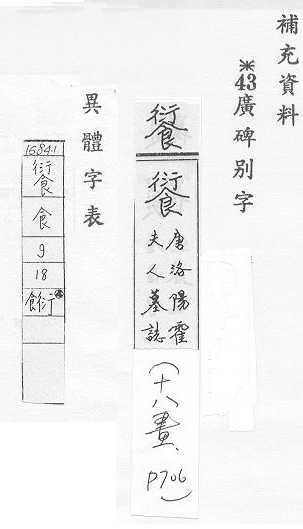 補充資料
※43廣碑別字
唐洛陽霍
夫人墓誌
(十八畫、
P706)
異體字表
食
9
18
餰